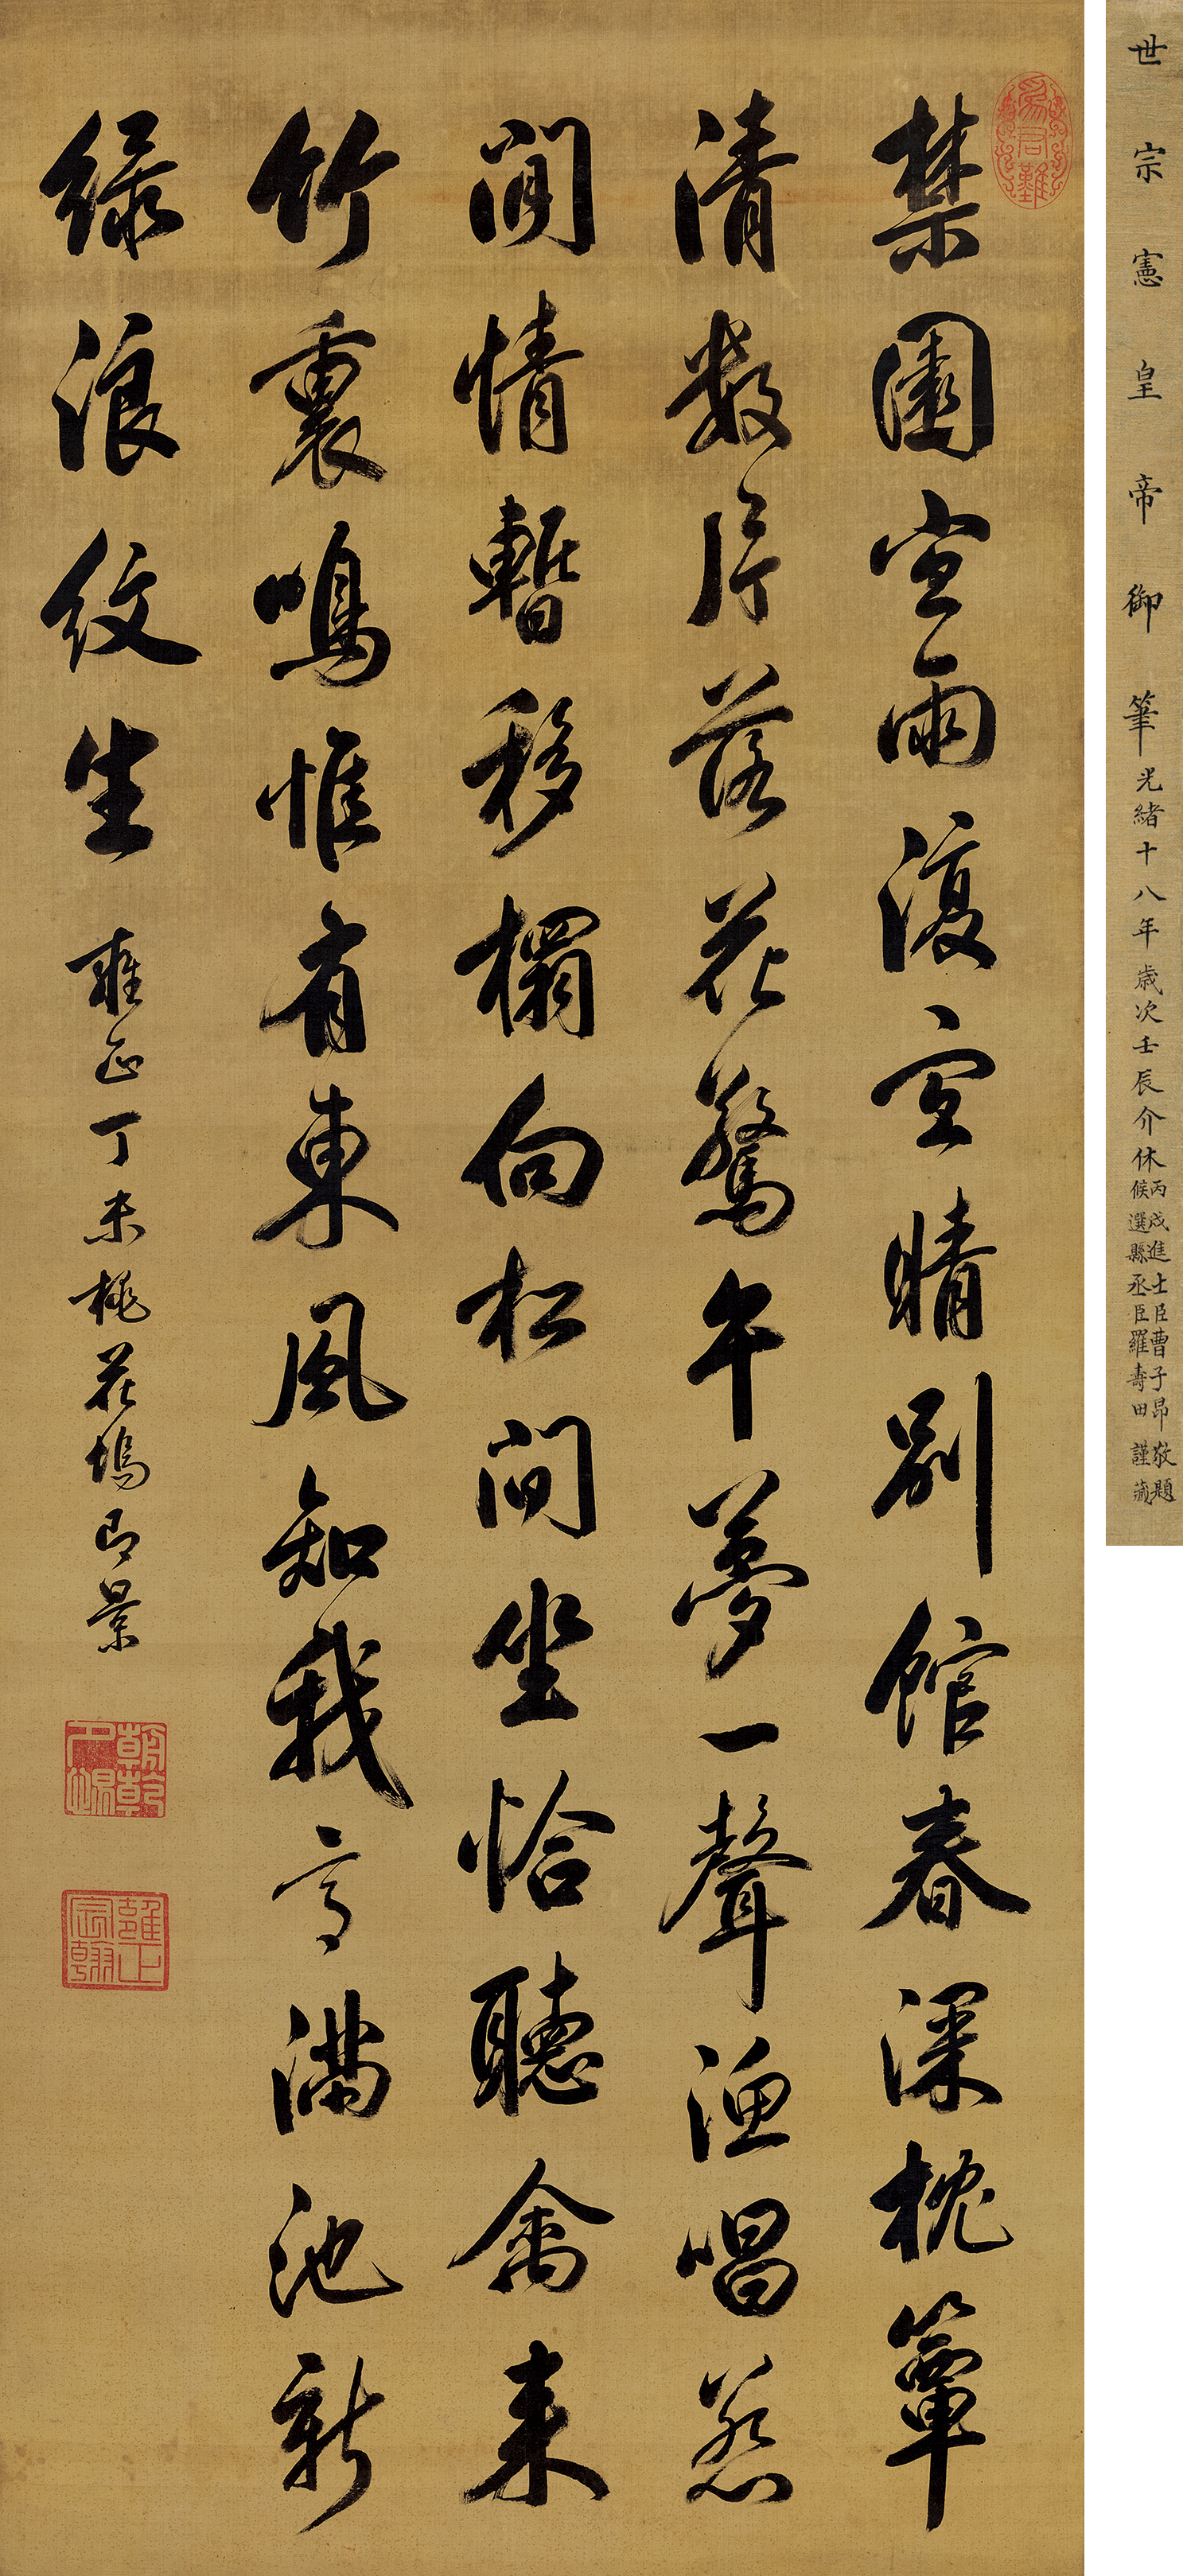 世宗憲皇帝御筆
光緒十八年歲次壬辰介休
丙戌進士臣曹子昂敬題
候選縣丞臣羅壽田謹藏
為君難
禁園宜雨復宜晴別館春深枕簟
清數片落花驚午夢一聲漁唱惹
閒情暫移榻向松間坐恰聽禽來
竹裏鳴惟有東風知我意滿池新
綠浪紋生
雍正丁未桃花塢即景
朝乾夕惕
雍正宸翰